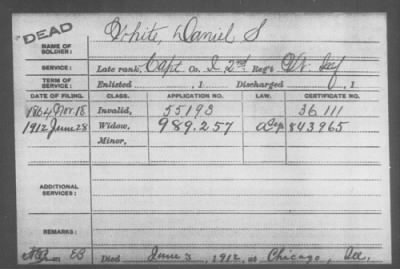 DEAD
NAME OF SOLDIER: White, Daniel S
SERVICE: Late rank, Capt Co. I 2nd Reg't Vt. Inf
TERM OF SERVICE: Enlisted , 1 Discharged , 1
DATE OF FILING. CLASS. APPLICATION NO. LAW. CERTIFICATE NO.
1864 Nov. 18 Invalid, 55193 36 111
1912 June 28 Widow, 989.257 843965
Minor,
ADDITIONAL SERVICES:
REMARKS:
EB Died June 3, 1912, at Chicago, Ill.